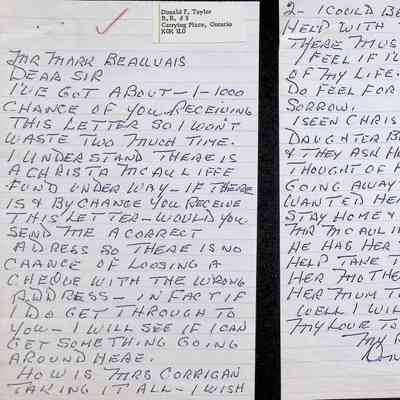 Donald F. Taylor
R. R. # 3
Carrying Place, Ontario
K0K 1L0
MR MARK BEAUVAIS
DEAR SIR
I'VE GOT ABOUT - 1-1000
CHANCE OF YOU RECEIVING
THIS LETTER SO I WON'T
WASTE TWO MUCH TIME.
I UNDERSTAND THERE IS
A CHRISTA MCAULIFFE
FUND UNDER WAY - IF THERE
IS & BY CHANGE YOU RECEIVE
THIS LETTER - WOULD YOU
SEND ME A CORRECT
ADDRESS SO THERE IS NO
CHANCE OF LOOSING A
CHEQUE WITH THE WRONG
ADDRESS - IN FACT IF
I DO GET THROUGH TO
YOU - I WILL SEE IF I CAN
GET SOMETHING GOING
AROUND HERE.
HOW IS MRS CORRIGAN
TAKING IT ALL - I WISH
2- I COULD BE
HELP WITH
THERE MUS
I FEEL IF I'
OF MY LIFE.
DO FEEL FOR
SORROW.
I SEEN CHRIS
DAUGHTER B
& THEY ASK H
THOUGHT OF
GOING AWAY
WANTED HER
STAY HOME &
MR MCAULI
HE HAS HER
HELP TAKE T
HER MOTHE
HER MUM T
WELL I WIL
MY LOVE TO
MY